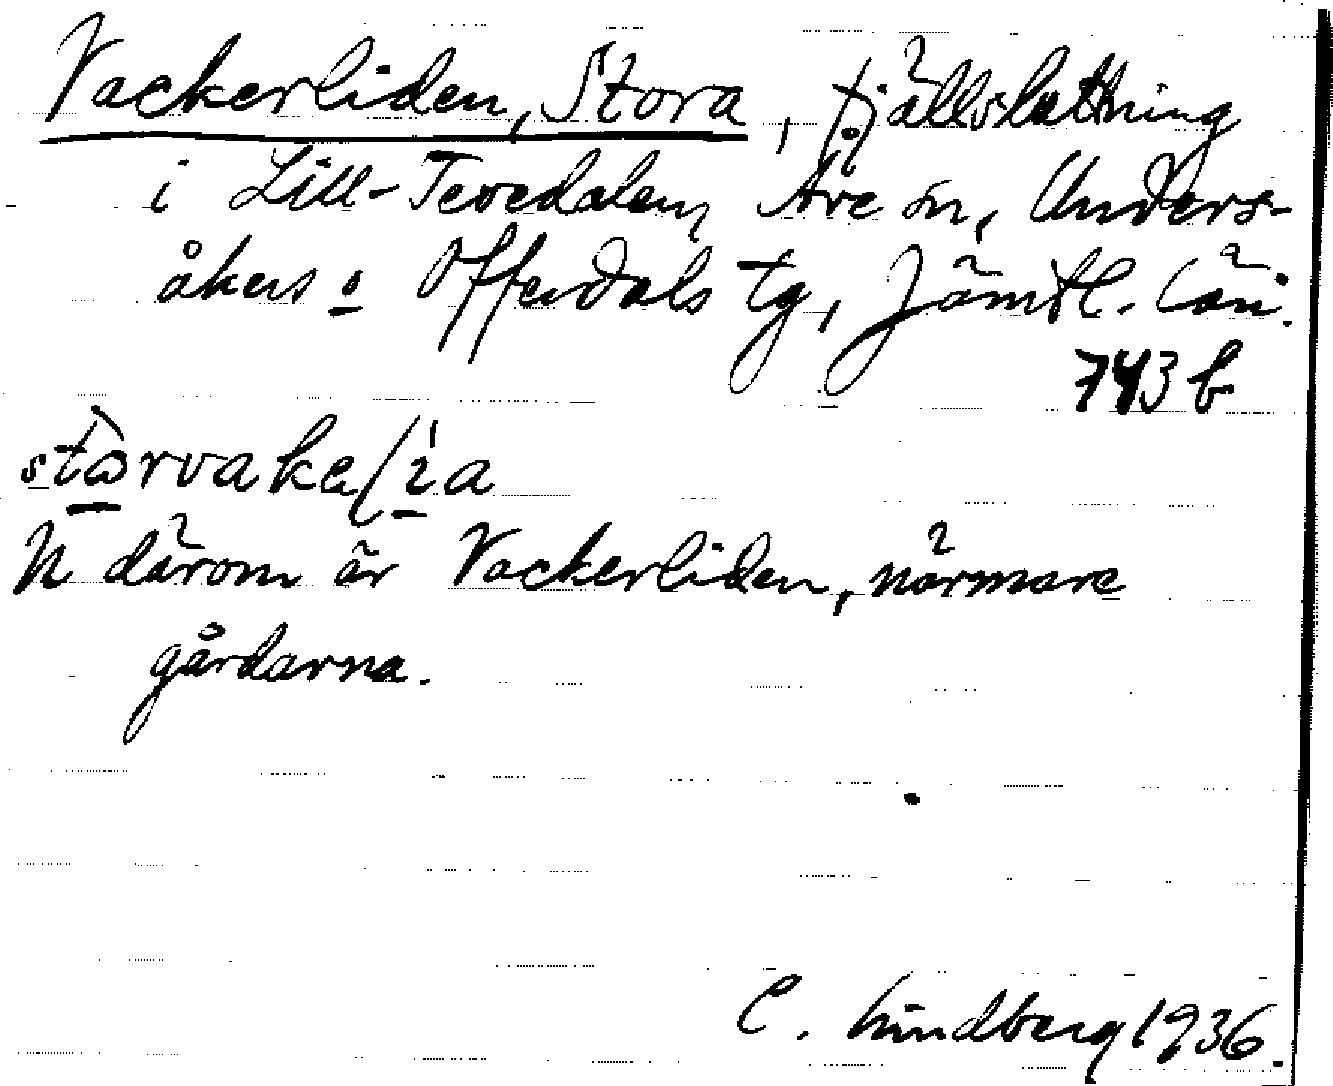 Vackerliden, Stora, fjällslåttning
i Lill-Tevedalen, Åre sn, Unders-
åkers o Offerdals tg, Jämtl. län.
743 b
N därom är Vackerliden, närmare
gårdarna.
C. Lindberg 1936.